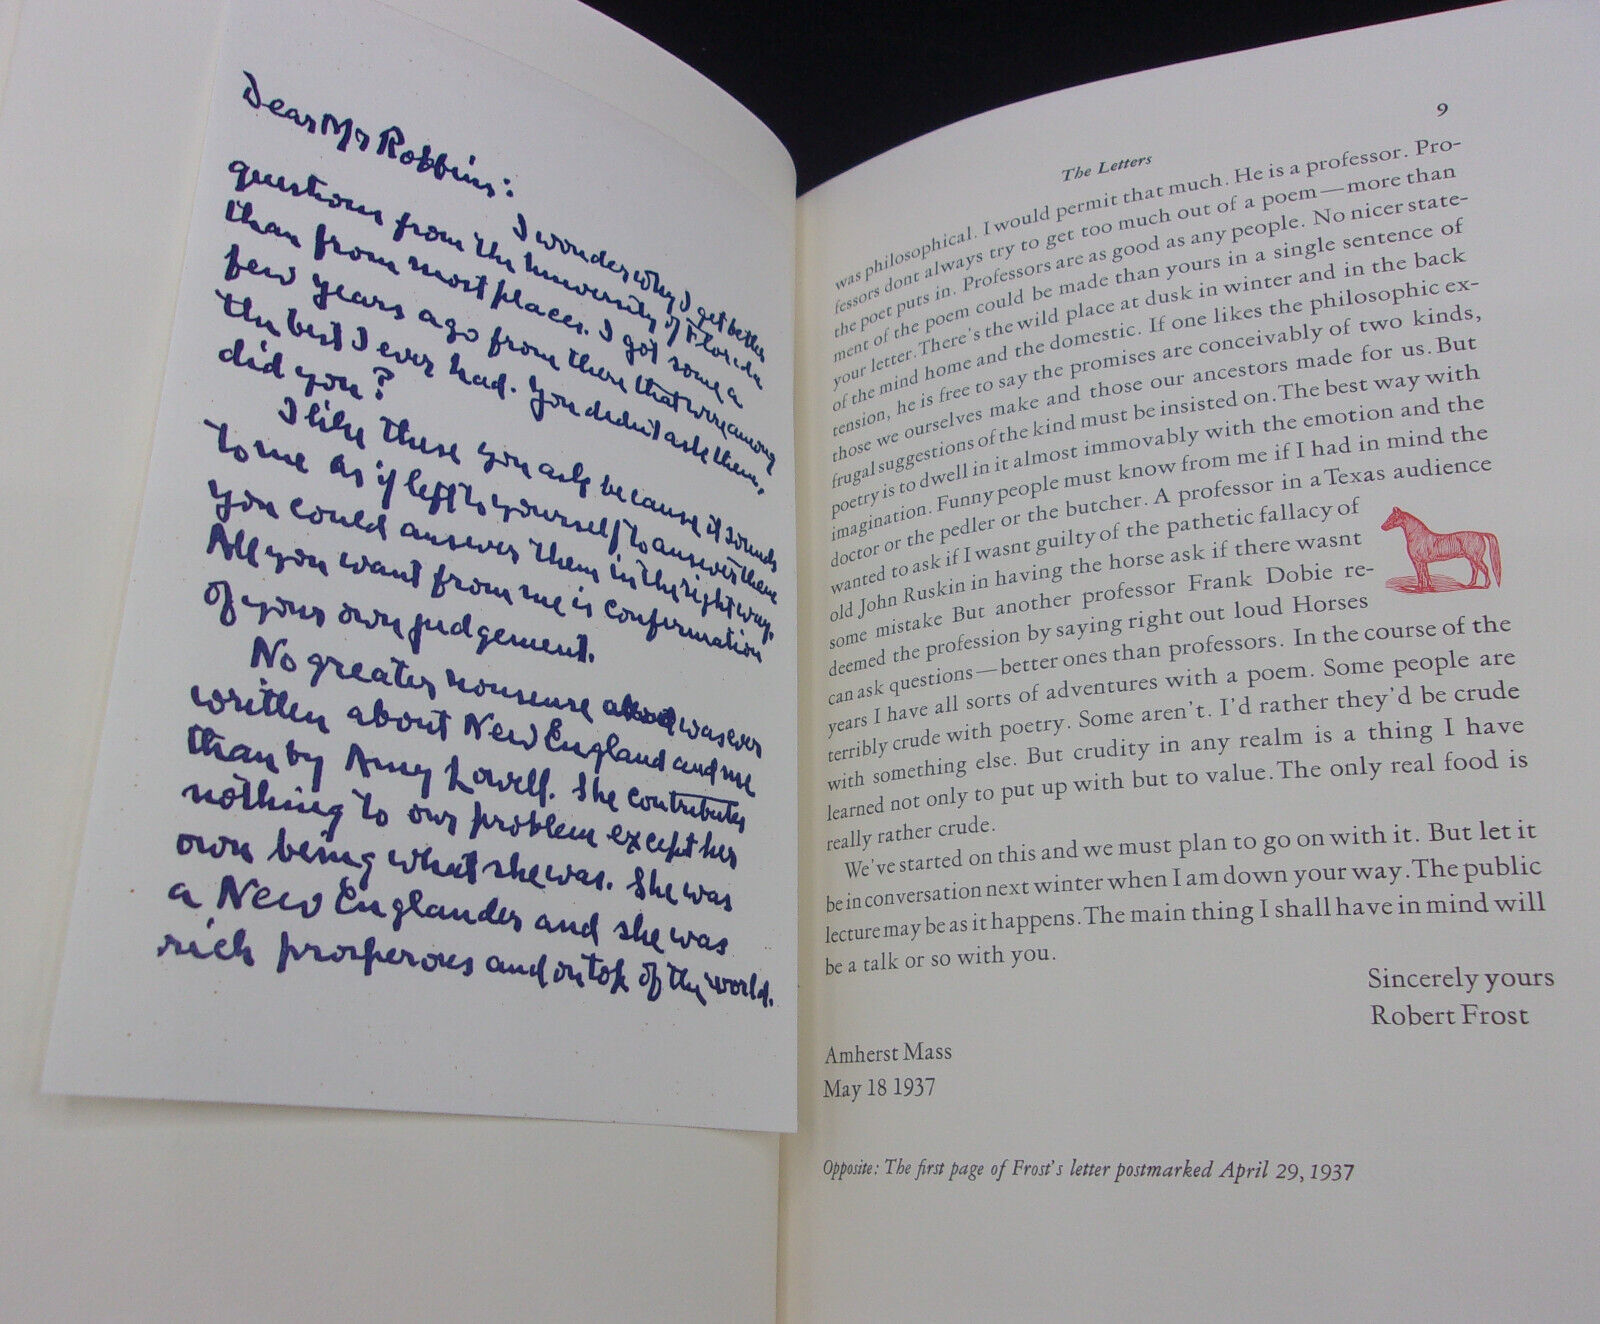 Dear Mr Robbins:
I wonder why I get better
questions from the University of Florida
than from most places. I got some a
few years ago from there that were among
the best I ever had. You didn't ask them,
did you?
I like these you ask because it sounds
to me as if left to yourself to answer them
you could answer them in the right way.
All you want from me is confirmation
of your own judgement.
No greater nonsense was ever
written about New England and me
than by Amy Lowell. She contributes
nothing to our problem except her
own being what she was. She was
a New Englander and she was
rich prosperous and on top of the world.
9
The Letters
was philosophical. I would permit that much. He is a professor. Pro-
fessors dont always try to get too much out of a poem—more than
the poet puts in. Professors are as good as any people. No nicer state-
ment of the poem could be made than yours in a single sentence of
your letter. There's the wild place at dusk in winter and in the back
of the mind home and the domestic. If one likes the philosophic ex-
tension, he is free to say the promises are conceivably of two kinds,
those we ourselves make and those our ancestors made for us. But
frugal suggestions of the kind must be insisted on. The best way with
poetry is to dwell in it almost immovably with the emotion and the
imagination. Funny people must know from me if I had in mind the
doctor or the pedler or the butcher. A professor in a Texas audience
wanted to ask if I wasnt guilty of the pathetic fallacy of
old John Ruskin in having the horse ask if there wasnt
some mistake But another professor Frank Dobie re-
deemed the profession by saying right out loud Horses
can ask questions—better ones than professors. In the course of the
years I have all sorts of adventures with a poem. Some people are
terribly crude with poetry. Some aren't. I'd rather they'd be crude
with something else. But crudity in any realm is a thing I have
learned not only to put up with but to value. The only real food is
really rather crude.
We've started on this and we must plan to go on with it. But let it
be in conversation next winter when I am down your way. The public
lecture may be as it happens. The main thing I shall have in mind will
be a talk or so with you.
Sincerely yours
Robert Frost
Amherst Mass
May 18 1937
Opposite: The first page of Frost's letter postmarked April 29, 1937